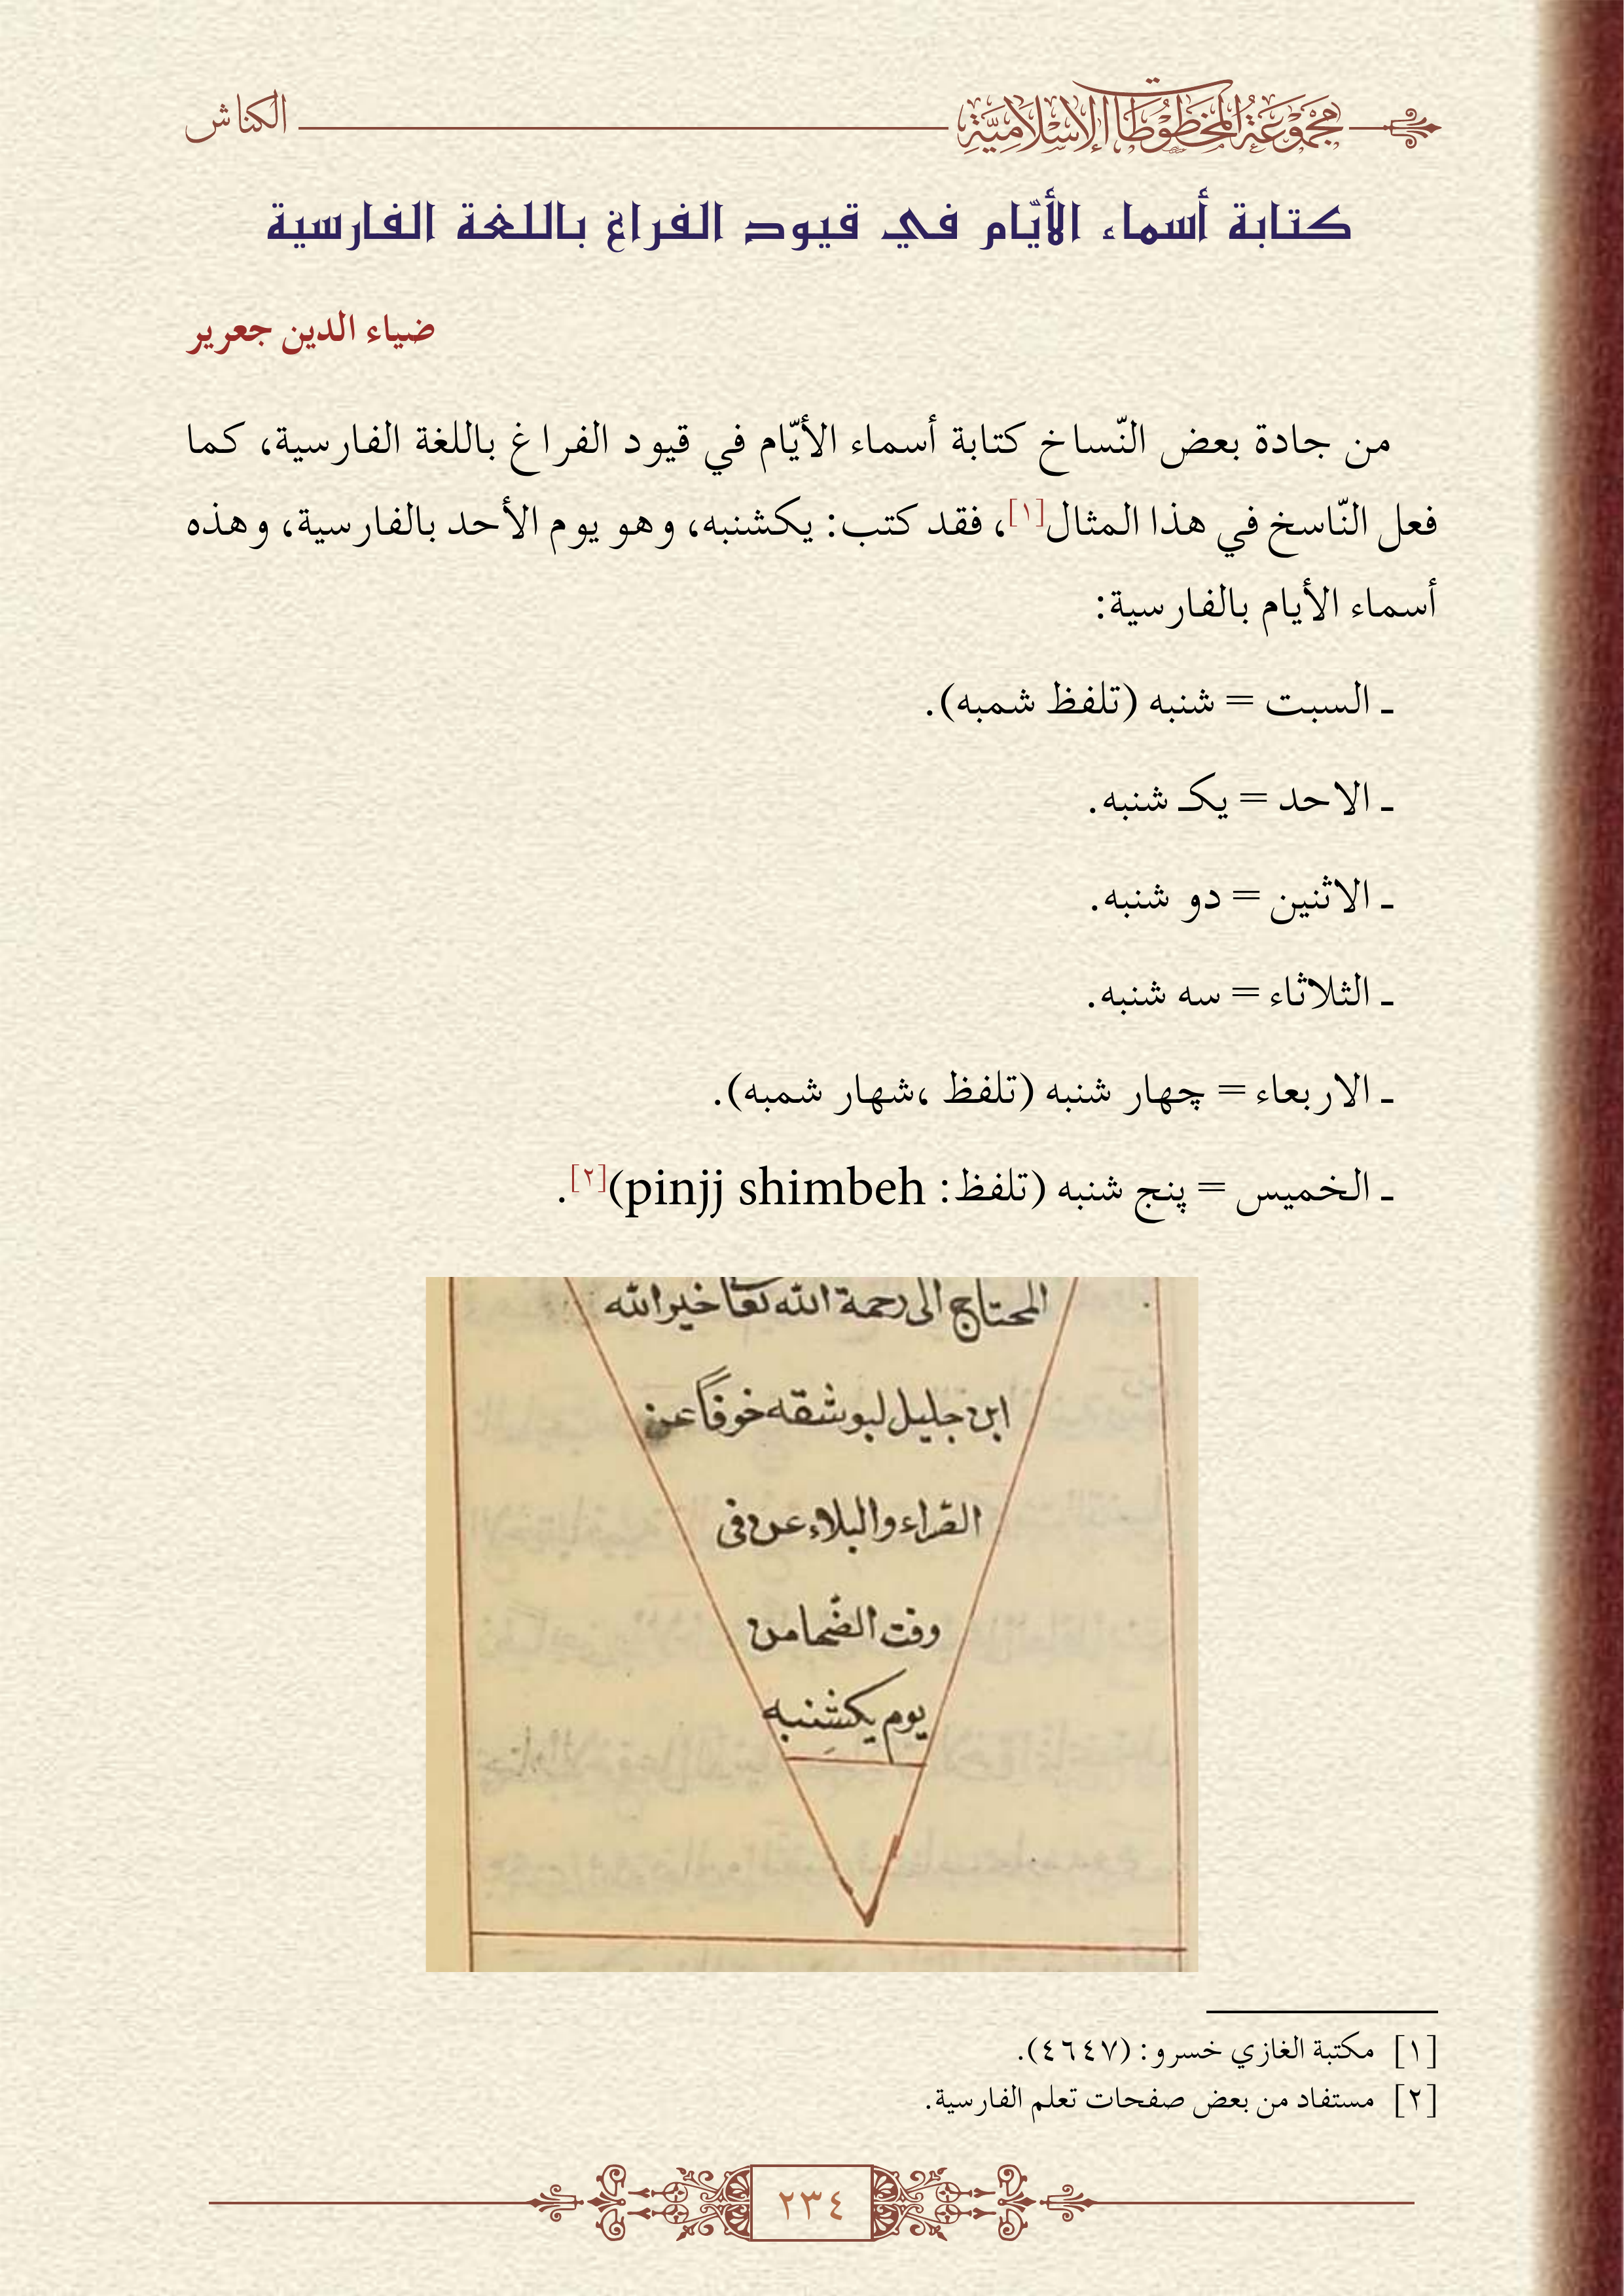 مجموعة المخطوطات الإسلامية
الكناش
كتابة أسماء الأيّام في قيود الفراغ باللغة الفارسية
ضياء الدين جعرير
من جادة بعض النّساخ كتابة أسماء الأيّام في قيود الفراغ باللغة الفارسية، كما
فعل النّاسخ في هذا المثال[١]، فقد كتب: يكشنبه، وهو يوم الأحد بالفارسية، وهذه
أسماء الأيام بالفارسية:
ـ السبت = شنبه (تلفظ شمبه).
ـ الاحد = يكـ شنبه.
ـ الاثنين = دو شنبه.
ـ الثلاثاء = سه شنبه.
ـ الاربعاء = چهار شنبه (تلفظ ،شهار شمبه).
ـ الخميس = پنج شنبه (تلفظ: pinjj shimbeh)[٢].
المحتاج الى رحمة الله تعا خير الله
ابن جليل لبوشقه خوفاً عن
القراء والبلاء عن فى
وقت الضحا من
يوم يكشنبه
[١] مكتبة الغازي خسرو: (٤٦٤٧).
[٢] مستفاد من بعض صفحات تعلم الفارسية.
٢٣٤